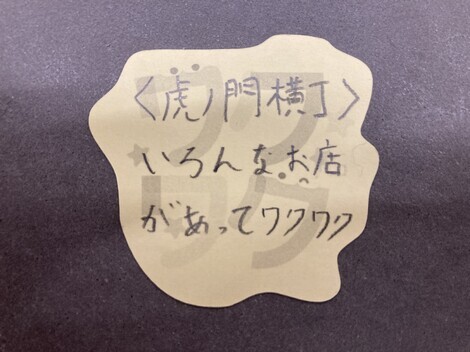 〈虎ノ門横丁〉
いろんなお店
があってワクワク
ワク
ワク